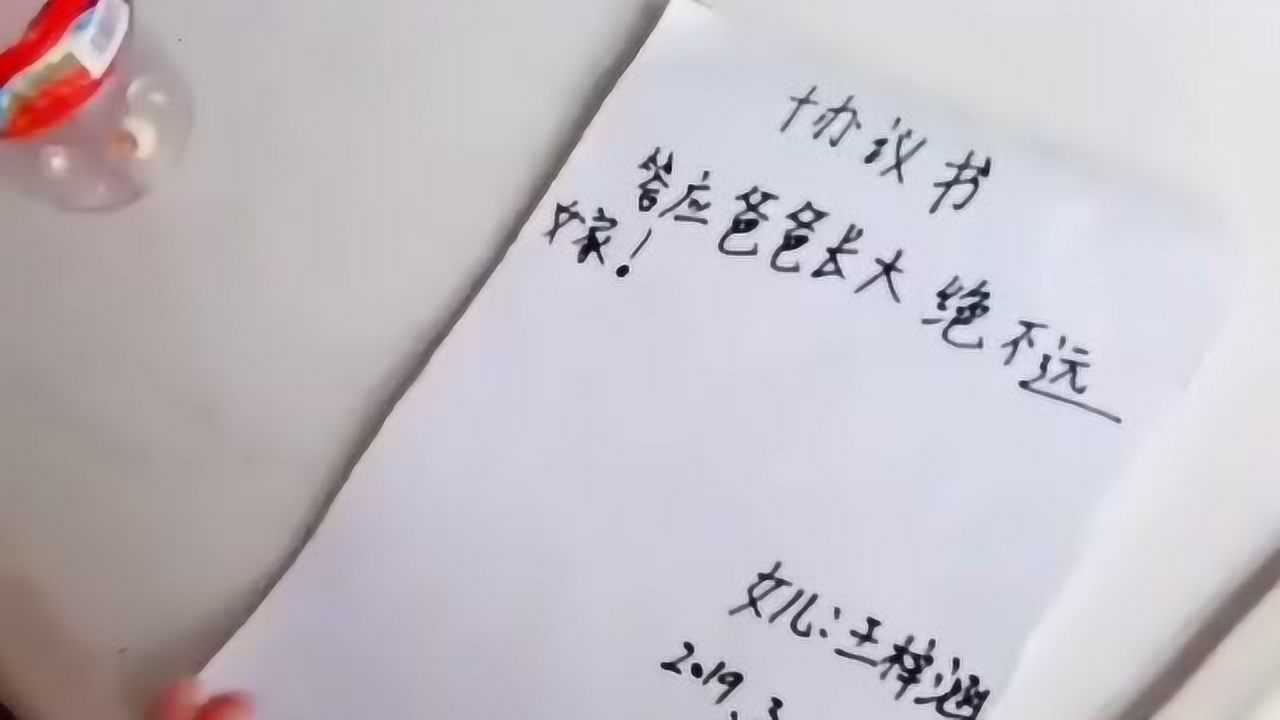 协议书
答应爸爸长大绝不远
嫁!
女儿:王梓涵
2019.3